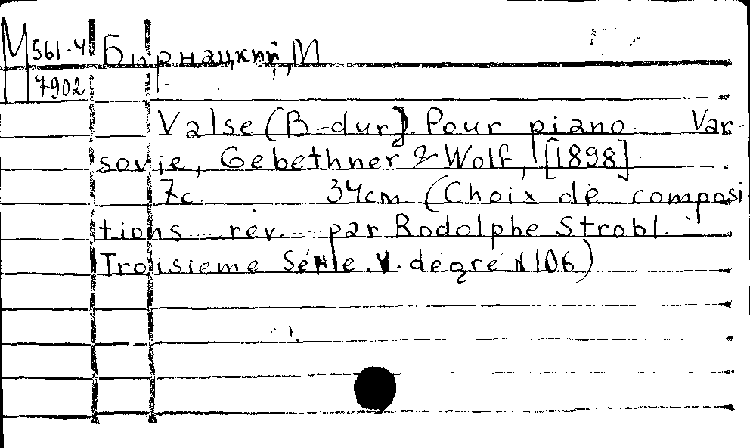 М 561-4 Бирнацкий, М
7902
Valse (B-dur). Pour piano Var
sovie, Gebethner & Wolf, [1898]
7c. 34cm (Choix de composi
tions rev. par Rodolphe Strobl.
Troisieme Serie. V. degre N 106)